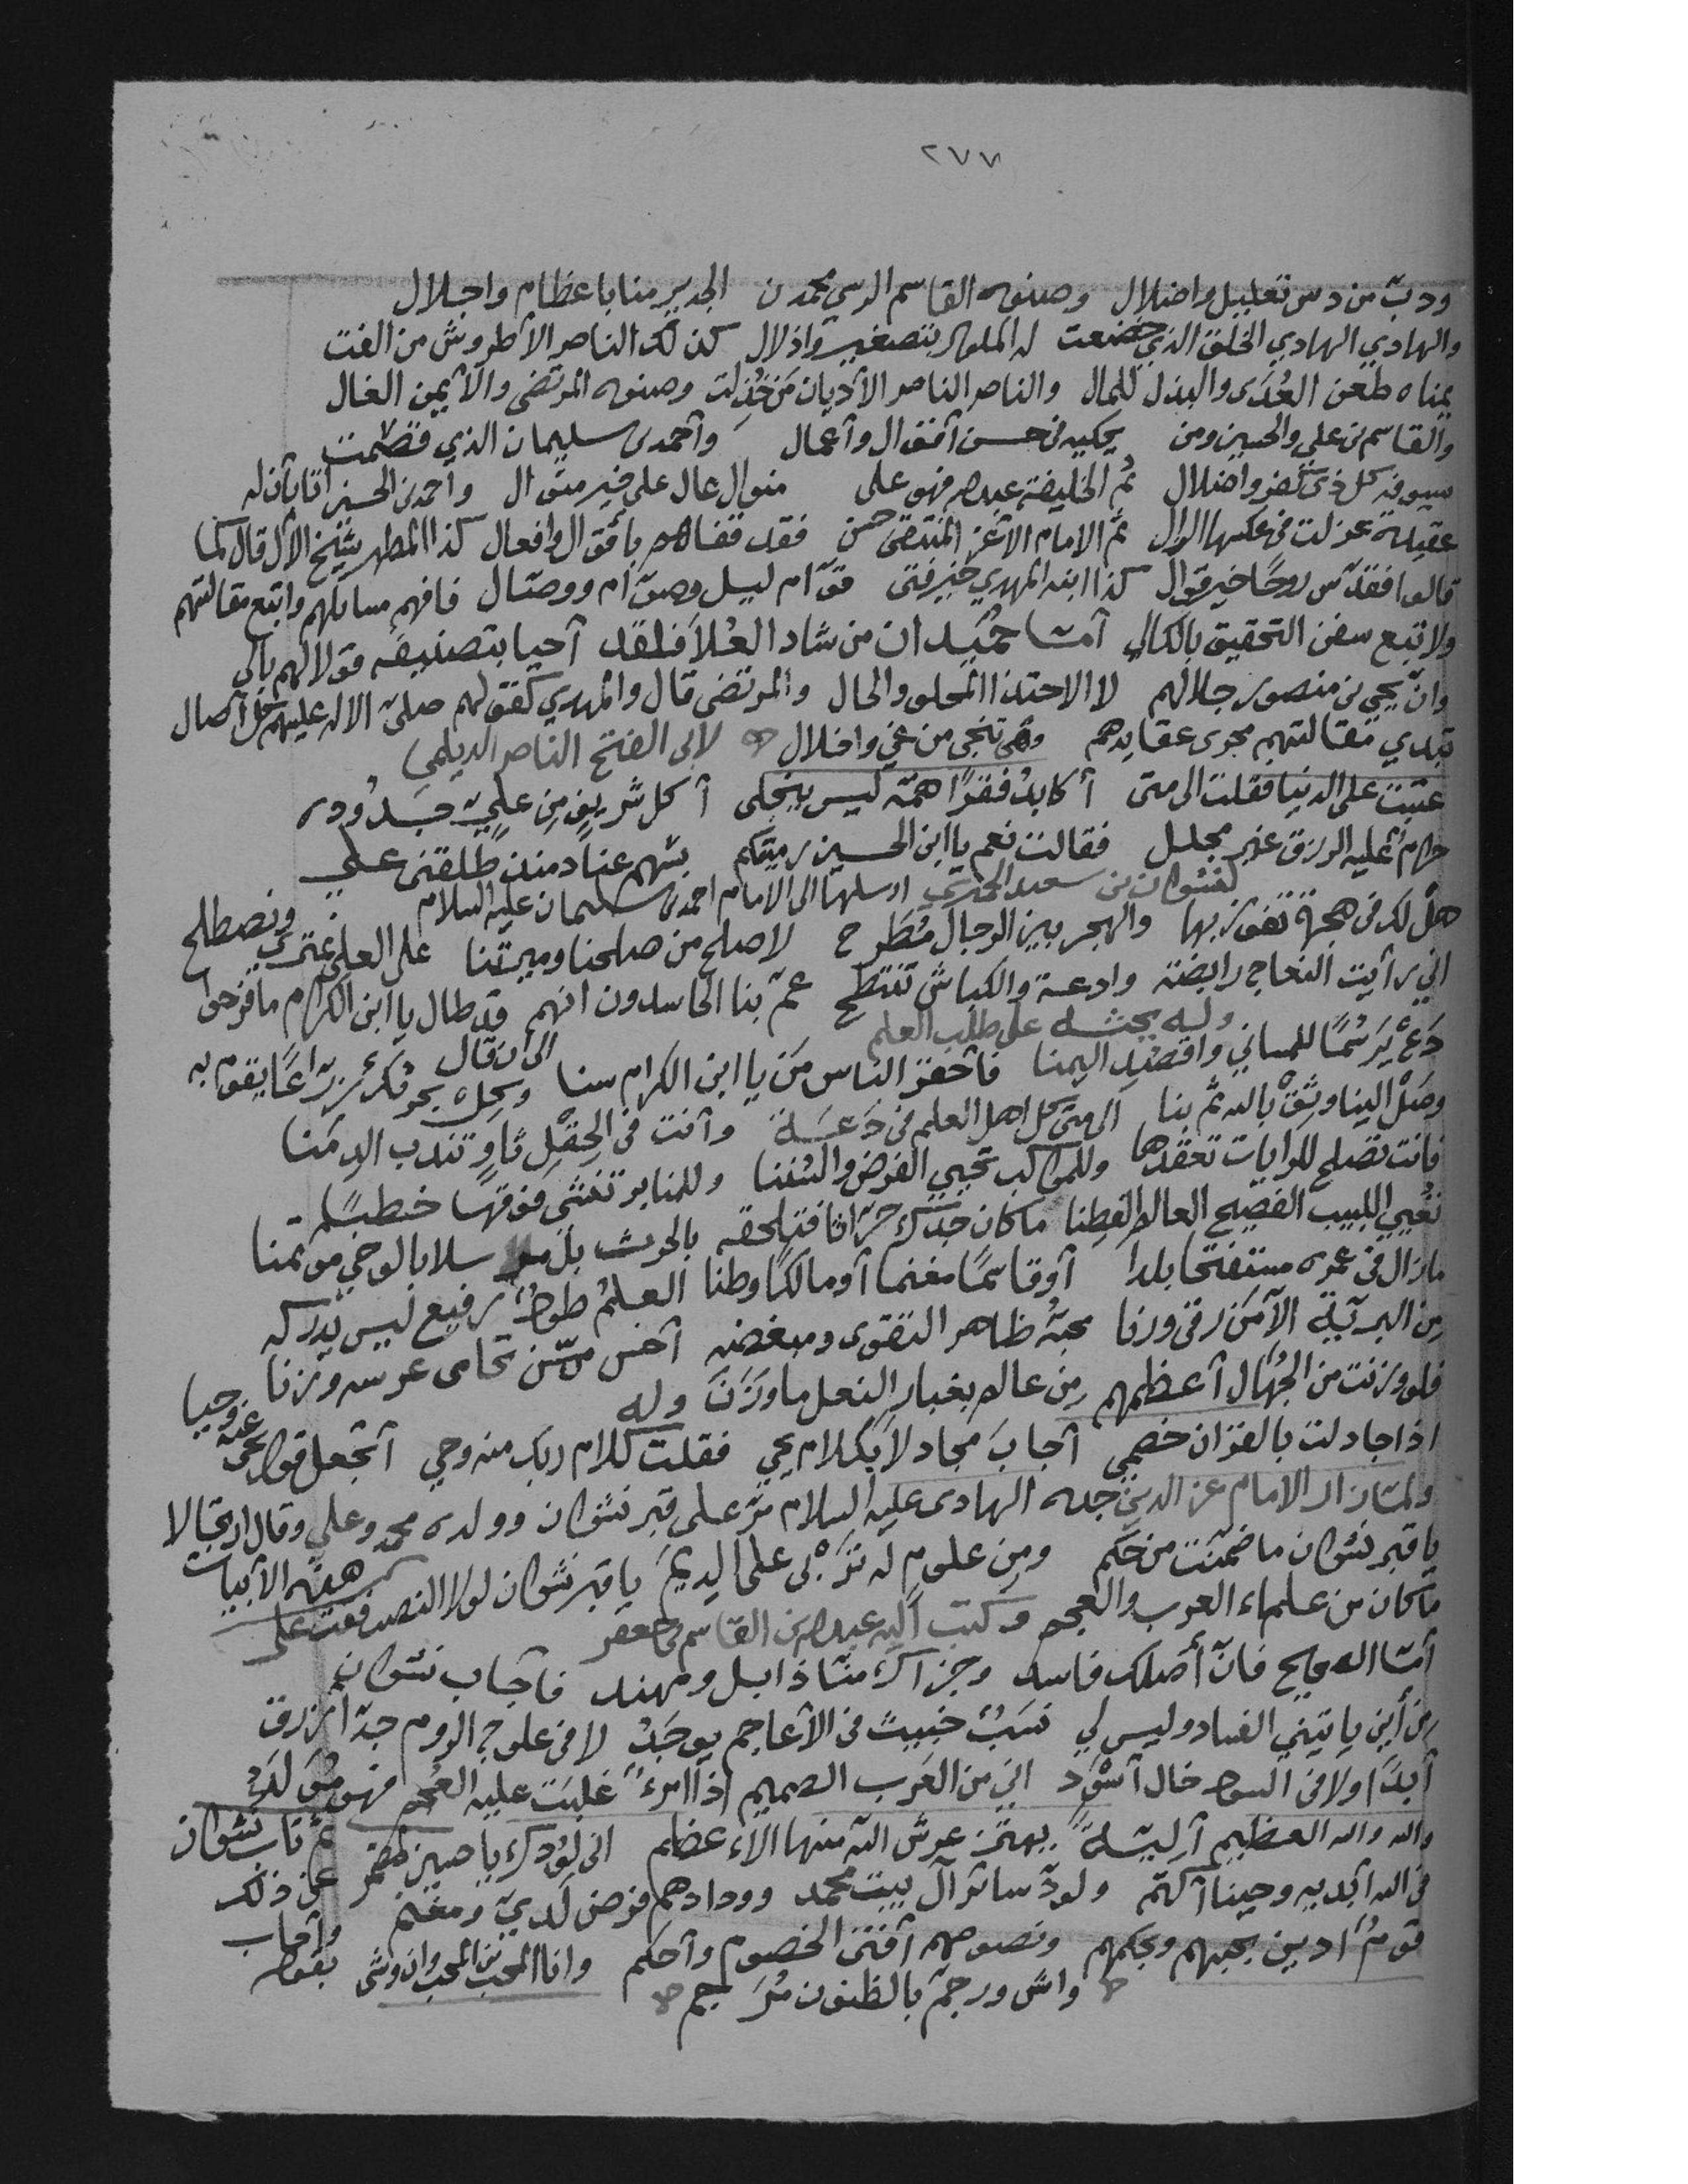 ٢٧٧
ودب من دس تعليل واضلال وصنوه القاسم الرسي محمد ن الجدير منا باعظام واجلال
والهادي الهادي الخلق الذي خضعت له الملوك بتصغير واذلال كذلك الناصر الأطروش من الفت
يمناه طعن العُدَى والبذل للمال والناصر الناصر الأديان من خُذلت وصنوه المرتضى والأيمن الغال
والقاسم بن علي والحسين ومن يحكيه في حسن أقوال وأعمال وأحمد بن سليمان الذي قصمت
سيوفه كل ذي كفر واضلال ثم الخليفة عبدالله فهو على منوال عال على خير منوال واحمد بن الحسين
عقيلة عزلت في عكسها ثم الامام الأغر المنتضى حسن فقد قفاهم بأقوال وافعال كذا المطهر شيخ الآل قال كما
قالوا فقدّس روحًا خير قوال كذا ابنه المهدي خير فتى قوّام ليل وصوّام ووصّال فافهم مسائلهم واتبع مقالتهم
ولا تبع سفن التحقيق بالكال أمّا حُميدان من شاد العُلا فلقد أحيا بتصنيفه قولا لهم بالي
وان يحيى بن منصور جلالهم لا الاحتذا والحال والمرتضى قال والمهدي كقولهم صلى الاله عليهم كل آصال
تبدي مقالتهم مجرى عقايدهم وهي تنجي من غي واضلال لابي الفتح الناصر الديلمي
عتبت على الدنيا فقلت الى متى أكابد فقرًا همه ليس ينجلى أكل شريف من عليّ جدوده
حرام عليه الرزق غير محلل فقالت نعم يا ابن الحسين رميتكم بسهم عنادمنذ طلقني علي
لنشوان بن سعيد الحميري ارسلها الى الامام احمد بن سليمان عليه السلام
هل لك في هجرة تفوز بها والهجر بين الرجال مُطَّرح لاصلح من صلحنا وميرتنا على العلى ونصطلح
اني رأيت النعاج رابضة وادعة والكباش تنتطح عمّ بنا الحاسدون انهم قد طال يا ابن الكرام مافرحوا
وله يحثه على طلب العلم
دع يرسُمًا للمساني واقصد اليمنا فأحفز الناس من يا ابن الكرام سنا الى ان قال
وصل الينا وثق بالله ثم بنا الى متى كل اهل العلم في دَعَة وأنت في الحِقل ثاوٍ تندب الدمنا
فانت تصلح للرايات تعقدها وللمواكب تحيي الفرض والسننا وللمنابر تغشى فوقها خطبًا
تُعيي اللبيب الفصيح العالم الفطنا ماكان جدك حرّاثا فتلحقه بالحرث بل مرسلا بالوحي موتمنا
مازال في عمره مستفتحا بلدا أوقاسمًا مغنما أومالكًا وطنا العلمُ طودٌ رفيع ليس يدركه
من البريّة الا من زقى ورنا محبّه ظاهر التقوى ومبغضه أخس ممّن تحامى عرسه وزنا
فلو وزنت من الجُهّال أعظمهم من عالم بغبار النعل ما وزنَ وله
اذا جادلت بالقران خصمي أجابَ مجادلا بكلام يحي فقلت كلام ربك منه وحي أتجعل قول يحيى عنه وحيا
ولما زار الامام عز الدين جده الهادى عليه السلام مرّ على قبر نشوان وولده محمد وعلي وقال ارتجالا
هذه الأبيات
يا قبر نشوان ما ضُمِّنت من حكم ومن علوم له تُربى على الديم يا قبر نشوان لولا النصب فقت على
ماكان من علماء العرب والعجم وكتب اليه عبدالله بن القاسم بن جعفر
أمّا الصحيح فانّ أصلك فاسد وجزاك منّا ذابل ومهند فأجاب نشوان
من أين يأتيني الفساد وليس لي نسَبٌ خبيث في الأعاجم يوجَدُ لا في علوج الروم جدّ أزرق
أبدًا ولا في السود خال أسْود اني من العَرب الصميم اذا امرءٌ غلبَت عليه العُجم فهو مُوَلَّدُ
والله والله العظيم أليّةً يهتز عرش الله منها الاعظم اني لودّك يا حسين لمضمر ثم تاب نشوان عن ذلك
في الله أبديه وحينا أكتم ولودّ سائر آل بيت محمد وودادهم فرض لديّ ومغنم وأجاب
قومٌ أدين بحبهم وبحكمهم ونصوصهم أفتى الخصوم وأحكم وانا المحب بن المحب وان وشى بقوله
واش ورجم بالظنون مُرَجم